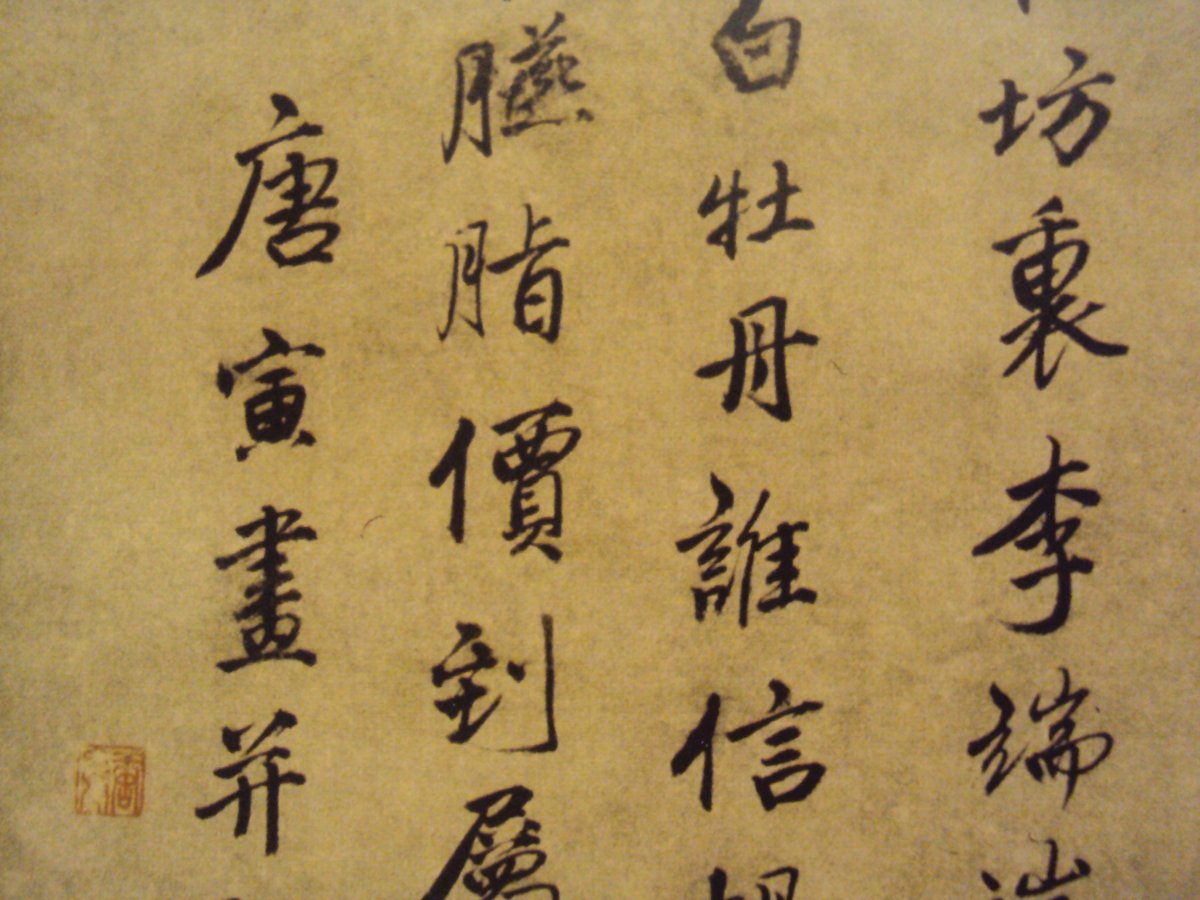 坊裏李端端
白牡丹誰信
臙脂價到屬
唐寅畫并